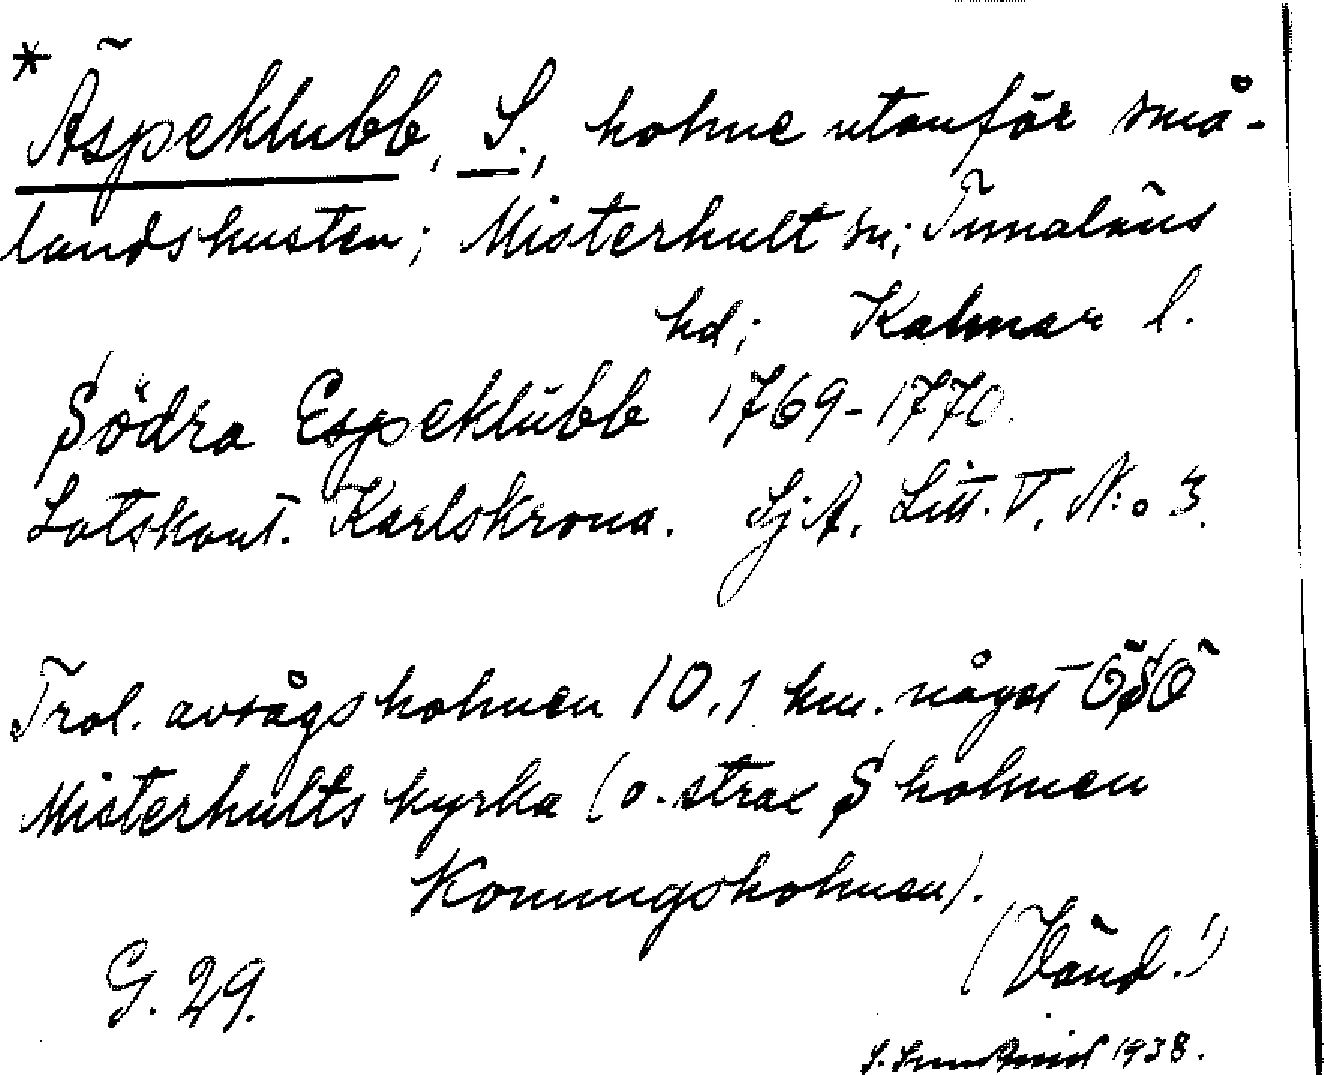 * Äspeklubb, S., holme utanför små-
landskusten; Misterhult sn; Tunaläns
hd; Kalmar l.
Södra Espeklubb 1769-1770.
Lotskont. Karlskrona. Sj.A. Litt. V. N:o 3.
Trol. avsågs holmen 10,1 km. något ÖSÖ
Misterhults kyrka (o. strax S holmen
Konungsholmen).
(Vänd!)
G. 29.
1938.